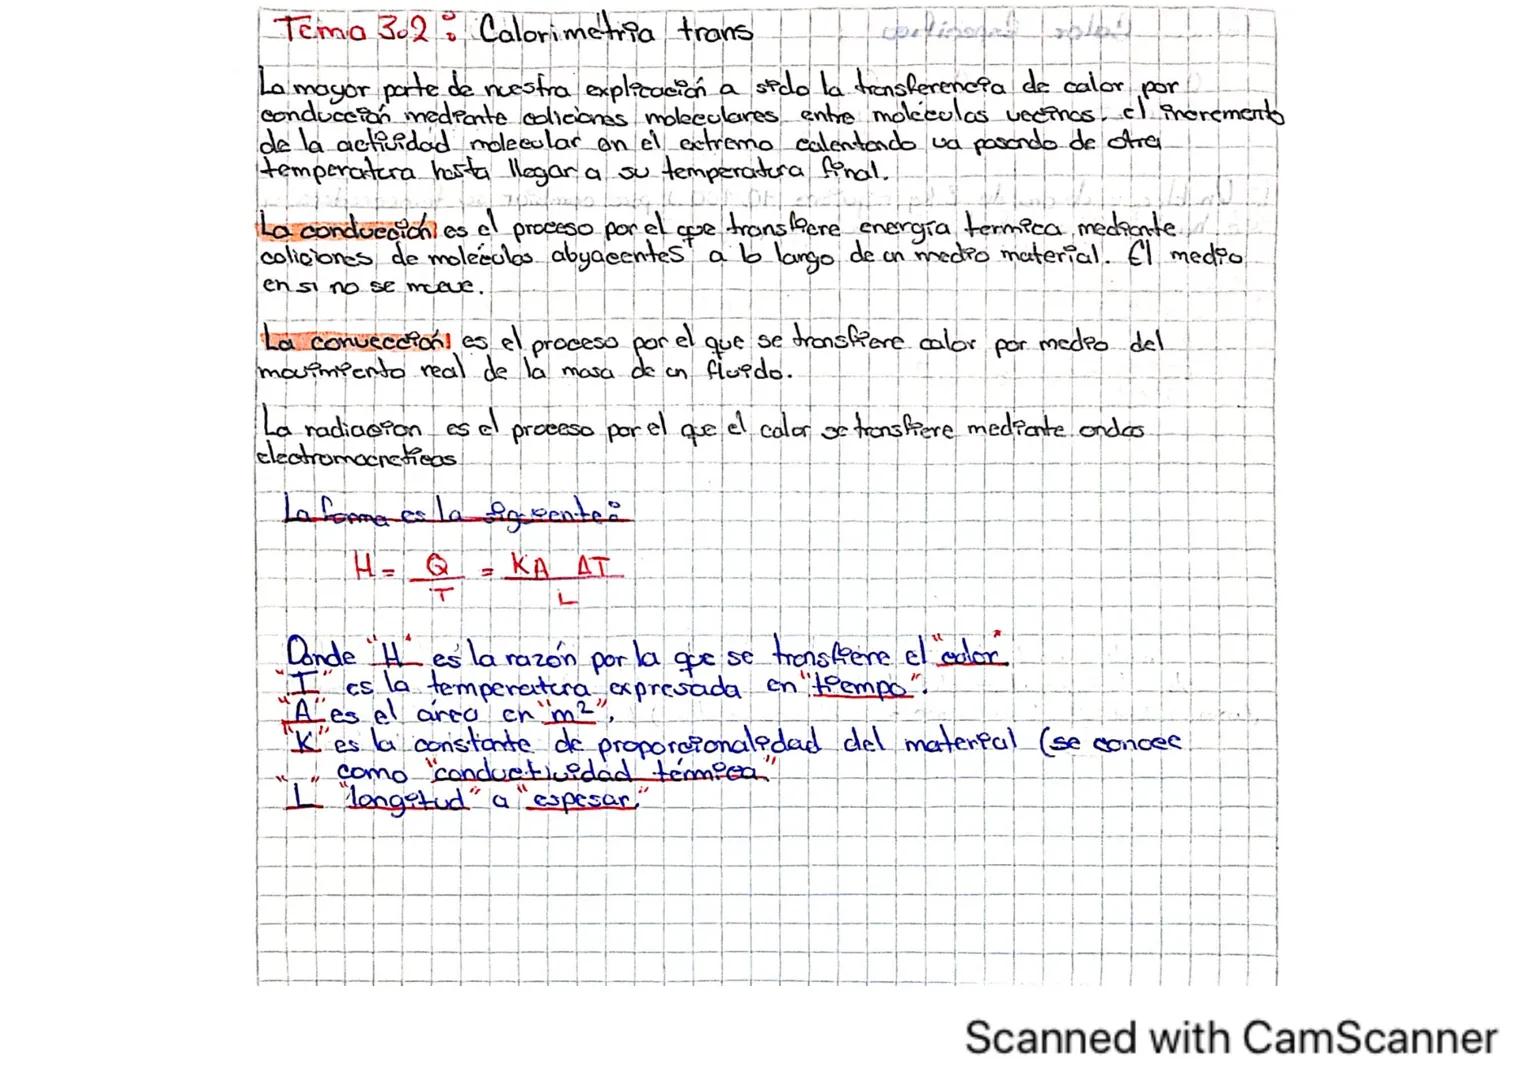 Tema 3.2: Calorimetria trans
La mayor parte de nuestra explicación a sido la transferencia de calor por
conducción mediante coliciones moleculares entre moleculas vecinas. el incremento
de la actividad molecular en el extremo calentando va pasando de otra
temperatura hasta llegar a su temperatura final.
La conducción es el proceso por el que transfiere energía termica mediante
coliciones de moléculas abyacentes a lo largo de un medio material. El medio
en si no se mueve.
La convección es el proceso por el que se transfiere calor por medio del
movimiento real de la masa de un fluido.
La radiacion es el proceso por el que el calor se transfiere mediante ondas
electromacneticas
La forma es la siguiente:
H = Q = KA ΔT
T L
Donde "H" es la razón por la que se transfiere el "calor".
"T" es la temperatura expresada en "tiempo".
"A" es el área en "m²".
"K" es la constante de proporcionalidad del material (se concee
como "conductividad térmica"
"L" "longitud" a "espesar."
Scanned with CamScanner